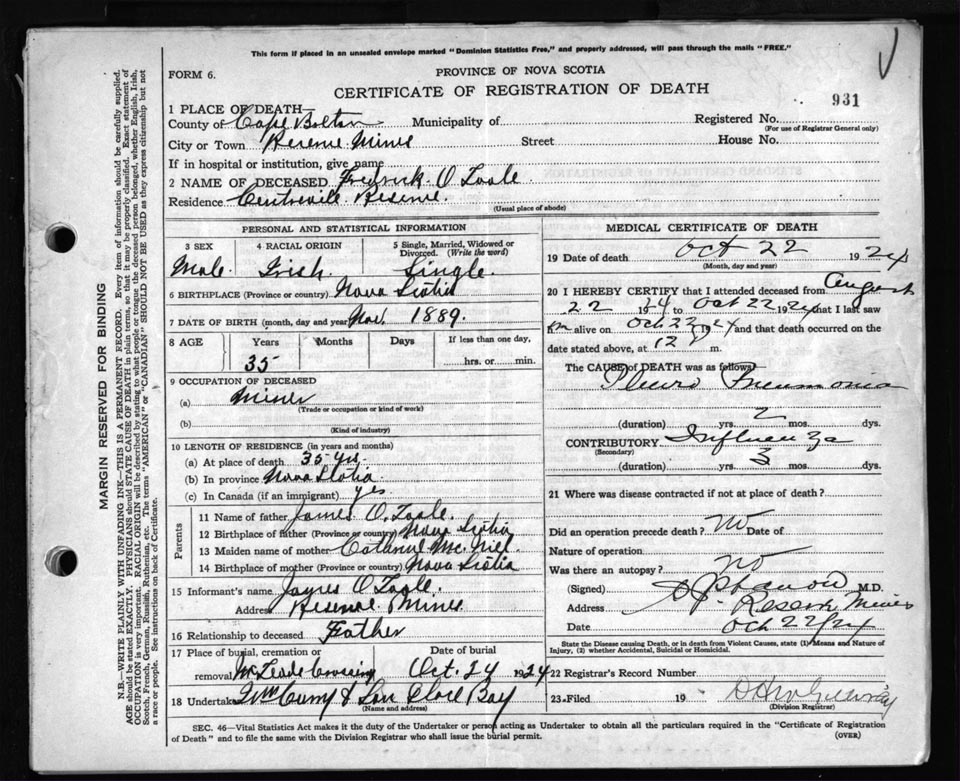 This form if placed in an unsealed envelope marked "Dominion Statistics Free," and properly addressed, will pass through the mails "FREE."
FORM 6.
PROVINCE OF NOVA SCOTIA
CERTIFICATE OF REGISTRATION OF DEATH
931
1 PLACE OF DEATH—
County of Cape Breton Municipality of Registered No.
(For use of Registrar General only)
City or Town Reserve Mines Street House No.
If in hospital or institution, give name
2 NAME OF DECEASED Fredrick O Toole
Residence Centreville Reserve.
(Usual place of abode)
PERSONAL AND STATISTICAL INFORMATION
3 SEX 4 RACIAL ORIGIN 5 Single, Married, Widowed or Divorced. (Write the word)
Male. Irish. Single.
6 BIRTHPLACE (Province or country) Nova Scotia
7 DATE OF BIRTH (month, day and year) Nov. 1889.
8 AGE Years Months Days If less than one day,
35 hrs. or min.
9 OCCUPATION OF DECEASED
(a) Miner
(Trade or occupation or kind of work)
(b)
(Kind of industry)
10 LENGTH OF RESIDENCE (in years and months)
(a) At place of death 35 yrs.
(b) In province Nova Scotia
(c) In Canada (if an immigrant) yes
Parents
11 Name of father James O. Toole.
12 Birthplace of father (Province or country) Nova Scotia
13 Maiden name of mother Mc Neil
14 Birthplace of mother (Province or country) Nova Scotia
15 Informant's name James O Toole.
Address Reserve Mines
16 Relationship to deceased Father
17 Place of burial, cremation or removal Date of burial
Mc Leods Crossing Oct. 24 1924
18 Undertaker & Son Glace Bay
(Name and address)
MEDICAL CERTIFICATE OF DEATH
19 Date of death Oct 22 1924
(Month, day and year)
20 I HEREBY CERTIFY that I attended deceased from August
22 1924 to Oct 22 1924 that I last saw
him alive on Oct 22 1924 and that death occurred on the
date stated above, at 12 m.
The CAUSE of DEATH was as follows
Pleuro Pneumonia
(duration) yrs. 2 mos. dys.
CONTRIBUTORY Influenza
(Secondary)
(duration) yrs. 3 mos. dys.
21 Where was disease contracted if not at place of death?
Did an operation precede death? No Date of
Nature of operation
Was there an autopsy? No
(Signed) M.D.
Address Reserve Mines
Date Oct 22/24
State the Disease causing Death, or in death from Violent Causes, state (1) Means and Nature of Injury, (2) whether Accidental, Suicidal or Homicidal.
22 Registrar's Record Number
23 Filed 19
(Division Registrar)
SEC. 46—Vital Statistics Act makes it the duty of the Undertaker or person acting as Undertaker to obtain all the particulars required in the "Certificate of Registration
of Death" and to file the same with the Division Registrar who shall issue the burial permit.
(OVER)
MARGIN RESERVED FOR BINDING
N.B.—WRITE PLAINLY WITH UNFADING INK—THIS IS A PERMANENT RECORD. Every item of information should be carefully supplied.
AGE should be stated EXACTLY. PHYSICIANS should STATE CAUSE OF DEATH in plain terms, so that it may be properly classified. Exact statement of
OCCUPATION is very important. RACIAL ORIGIN will be described by stating to what people or tongue the deceased person belonged, whether English, Irish,
Scotch, French, German, Russian, Ruthenian, etc. The terms "AMERICAN" or "CANADIAN" SHOULD NOT BE USED as they express citizenship but not
a race or people. See instructions on back of Certificate.